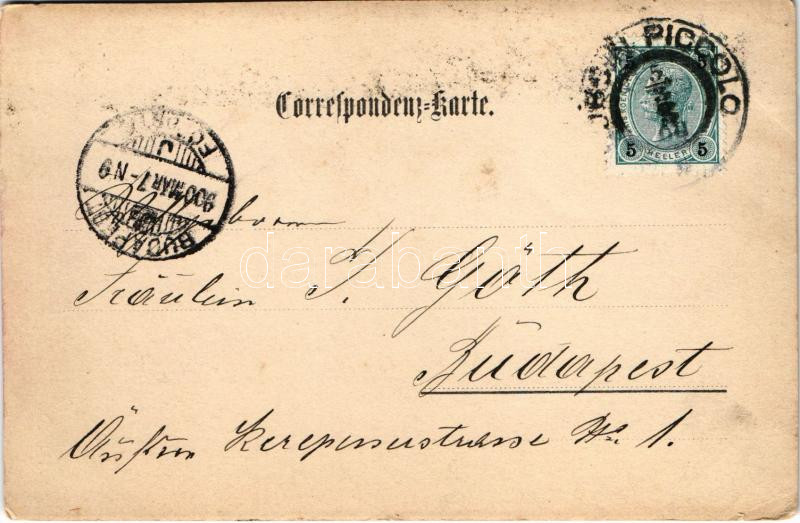 LUSSIN PICCOLO
5 HELLER 5
Correspondenz=Karte.
BUDAPEST
900 MÁR 7 - N 9
Wohlgeboren
Fräulein J. Göth
Budapest
Äußere Kerepeserstrasse No. 1.
darabanth